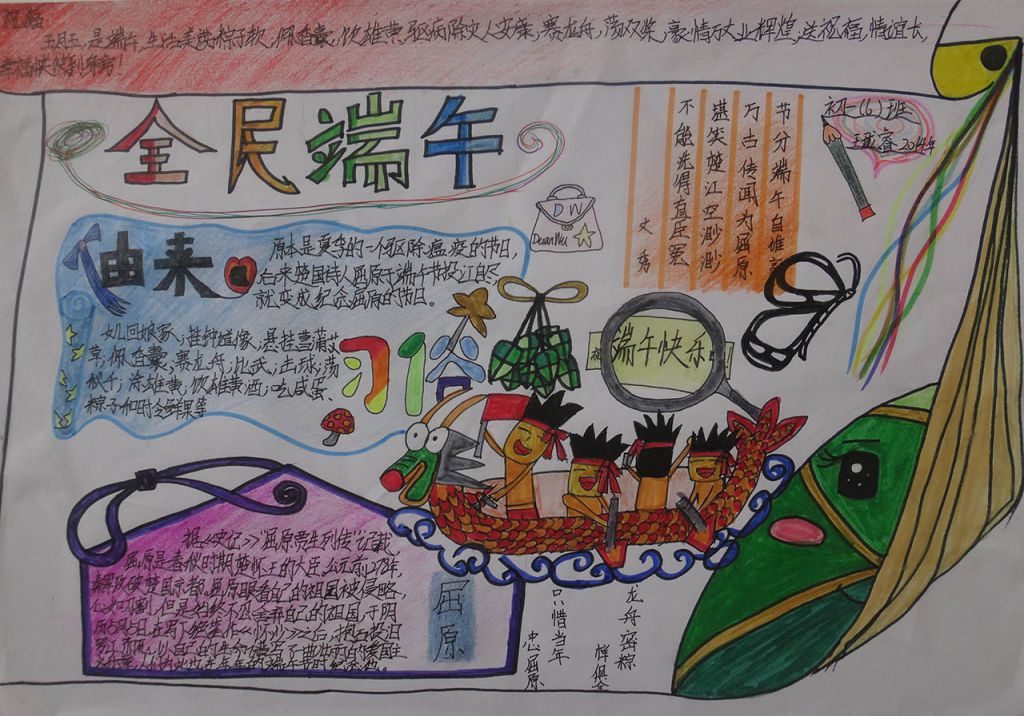 祝福
五月五,是端午,生活美,
佩香囊,饮雄黄,驱病除灾人安康,赛龙舟,荡双桨,豪情万丈业辉煌,送祝福,情谊长,
幸福快
全民端午
节分端午自谁言
万古传闻为屈原
堪笑楚江空渺渺
不能洗得直臣冤
文秀
初一(6)班
2014年
DW
DuanWu
由来
原本是夏季的一个驱除瘟疫的节日,
后来楚国诗人屈原于端午节投江自尽
就变成纪念屈原的节日。
习俗
女儿回娘家,挂钟馗像,悬挂菖蒲艾
草,佩香囊,赛龙舟,比武,击球,荡
秋千,涂雄黄,饮雄黄酒,吃咸蛋、
粽子和时令鲜果等
端午快乐
据《史记》"屈原贾生列传"记载,
屈原是春秋时期楚怀王的大臣,公元前278年,
秦军攻破楚国京都。屈原眼看自己的祖国被侵略,
心如刀割,但是始终不忍舍弃自己的祖国,于
五月五日,在写下绝笔作《怀沙》后,抱石投汨
罗江
屈原
龙舟密粽
只惜当年
忠屈原